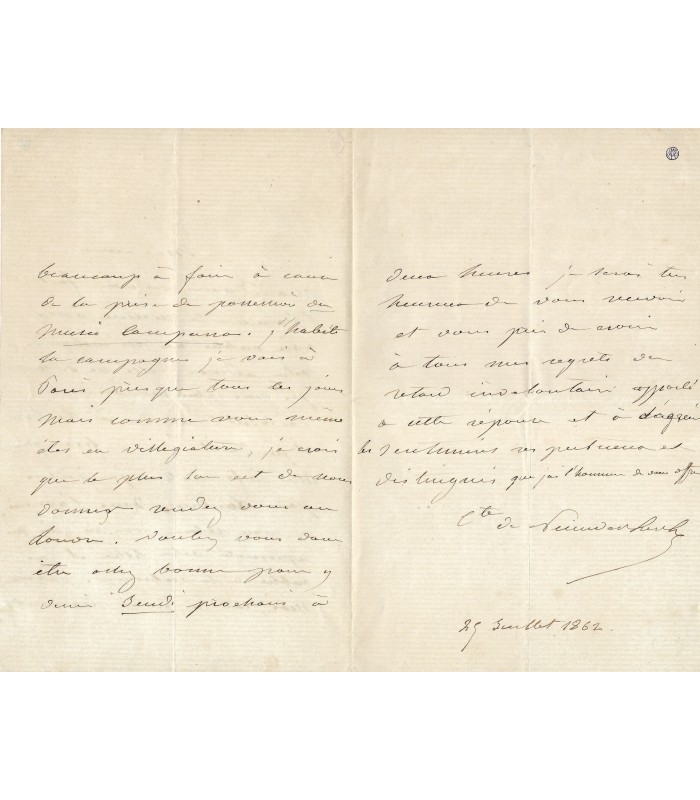 beaucoup à faire à cause
de la prise de possession du
Musée Campana. J'habite
la campagne je vais à
Paris presque tous les jours
mais comme vous même
êtes en villégiature, je crois
que le plus sur est de nous
donner rendez vous au
Louvre. Voulez vous donc
être assez bonne pour y
venir Jeudi prochain à
deux heures je serai très
heureux de vous recevoir
et vous prie de croire
à tous mes regrets du
retard involontaire apporté
à cette réponse et à d'agréer
les sentimens respectueux et
distingués que j'ai l'honneur de vous offrir
Cte de Nieuwerkerke
25 Juillet 1862.